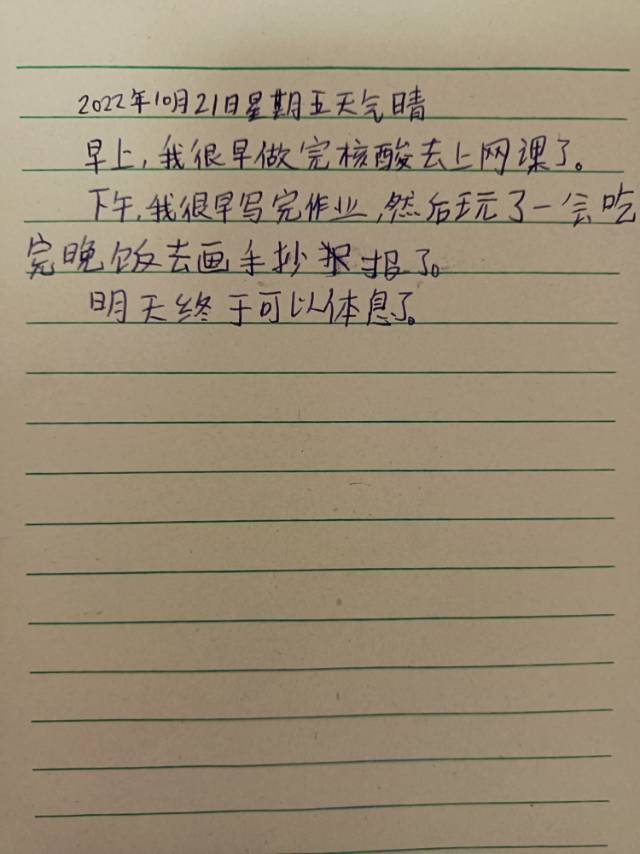 2022年10月21日星期五天气晴
早上,我很早做完核酸去上网课了。
下午,我很早写完作业,然后玩了一会吃
完晚饭去画手抄报了。
明天终于可以体息了。